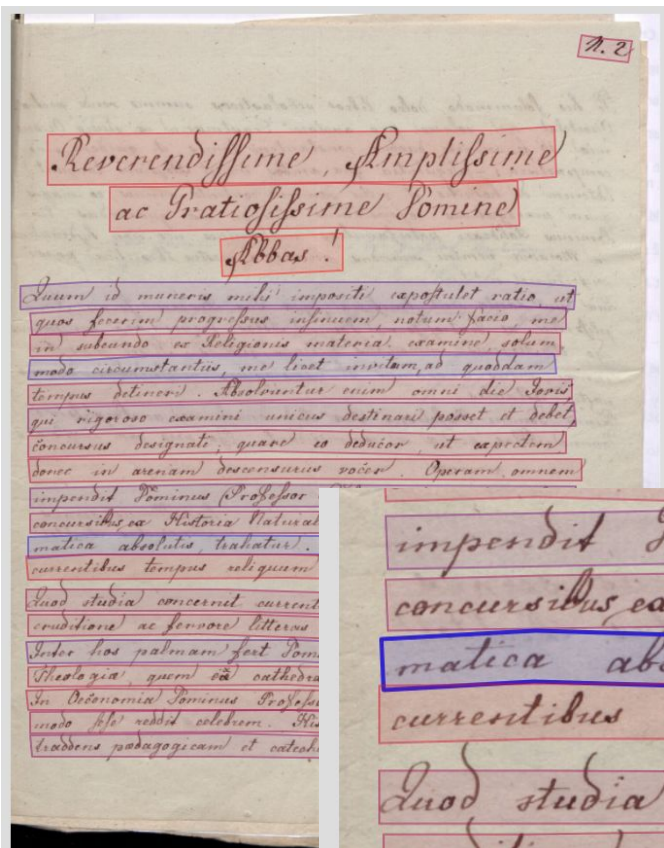 N. 2
Reverendissime, Amplissime
ac Gratiosissime Domine
Abbas!
Quum id muneris mihi impositi expostulet ratio, ut
quos fecerim progressus insinuem, notum facio, me
in subeundo ex Religionis materia examine, solum
modo circumstantiis, me licet invitam, ad quoddam
tempus detineri. Absolvuntur enim omni die Jovis,
qui rigoroso examini unicus destinari posset et debet,
concursus designati, quare eo deducor, ut expectem
donec in arenam descensurus vocer. Operam omnem
impendit Dominus Professor
concursibus, ea Historia Natural
matica absolutis, trahatur.
currentibus tempus reliquum
Quod studia concernit current
eruditione ac fervore litteras
Inter hos palmam fert Domi
Theologia, quem eâ cathedra
In Oeconomia Dominus Profess
modo sese reddit celebrem. His
traddens paedagogicam et catech
impendit
concursibus, ea
matica abs
currentibus
Quod studia